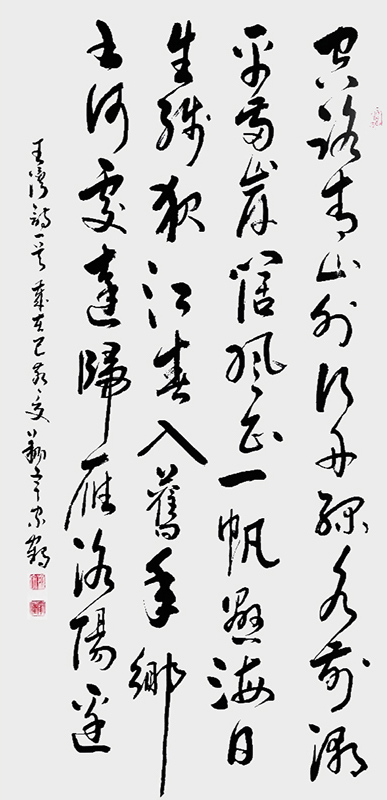 客路青山外行舟綠水前潮
平兩岸闊風正一帆懸海日
生殘夜江春入舊年鄉
書何處達歸雁洛陽邊
王灣詩一首歲在己亥夏